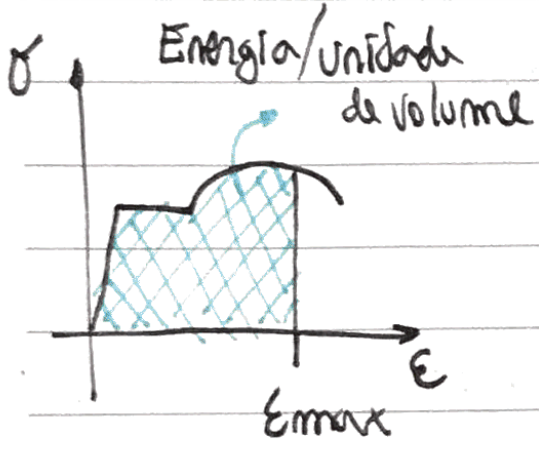 Energia/unidade
de volume
σ
ε
εmax